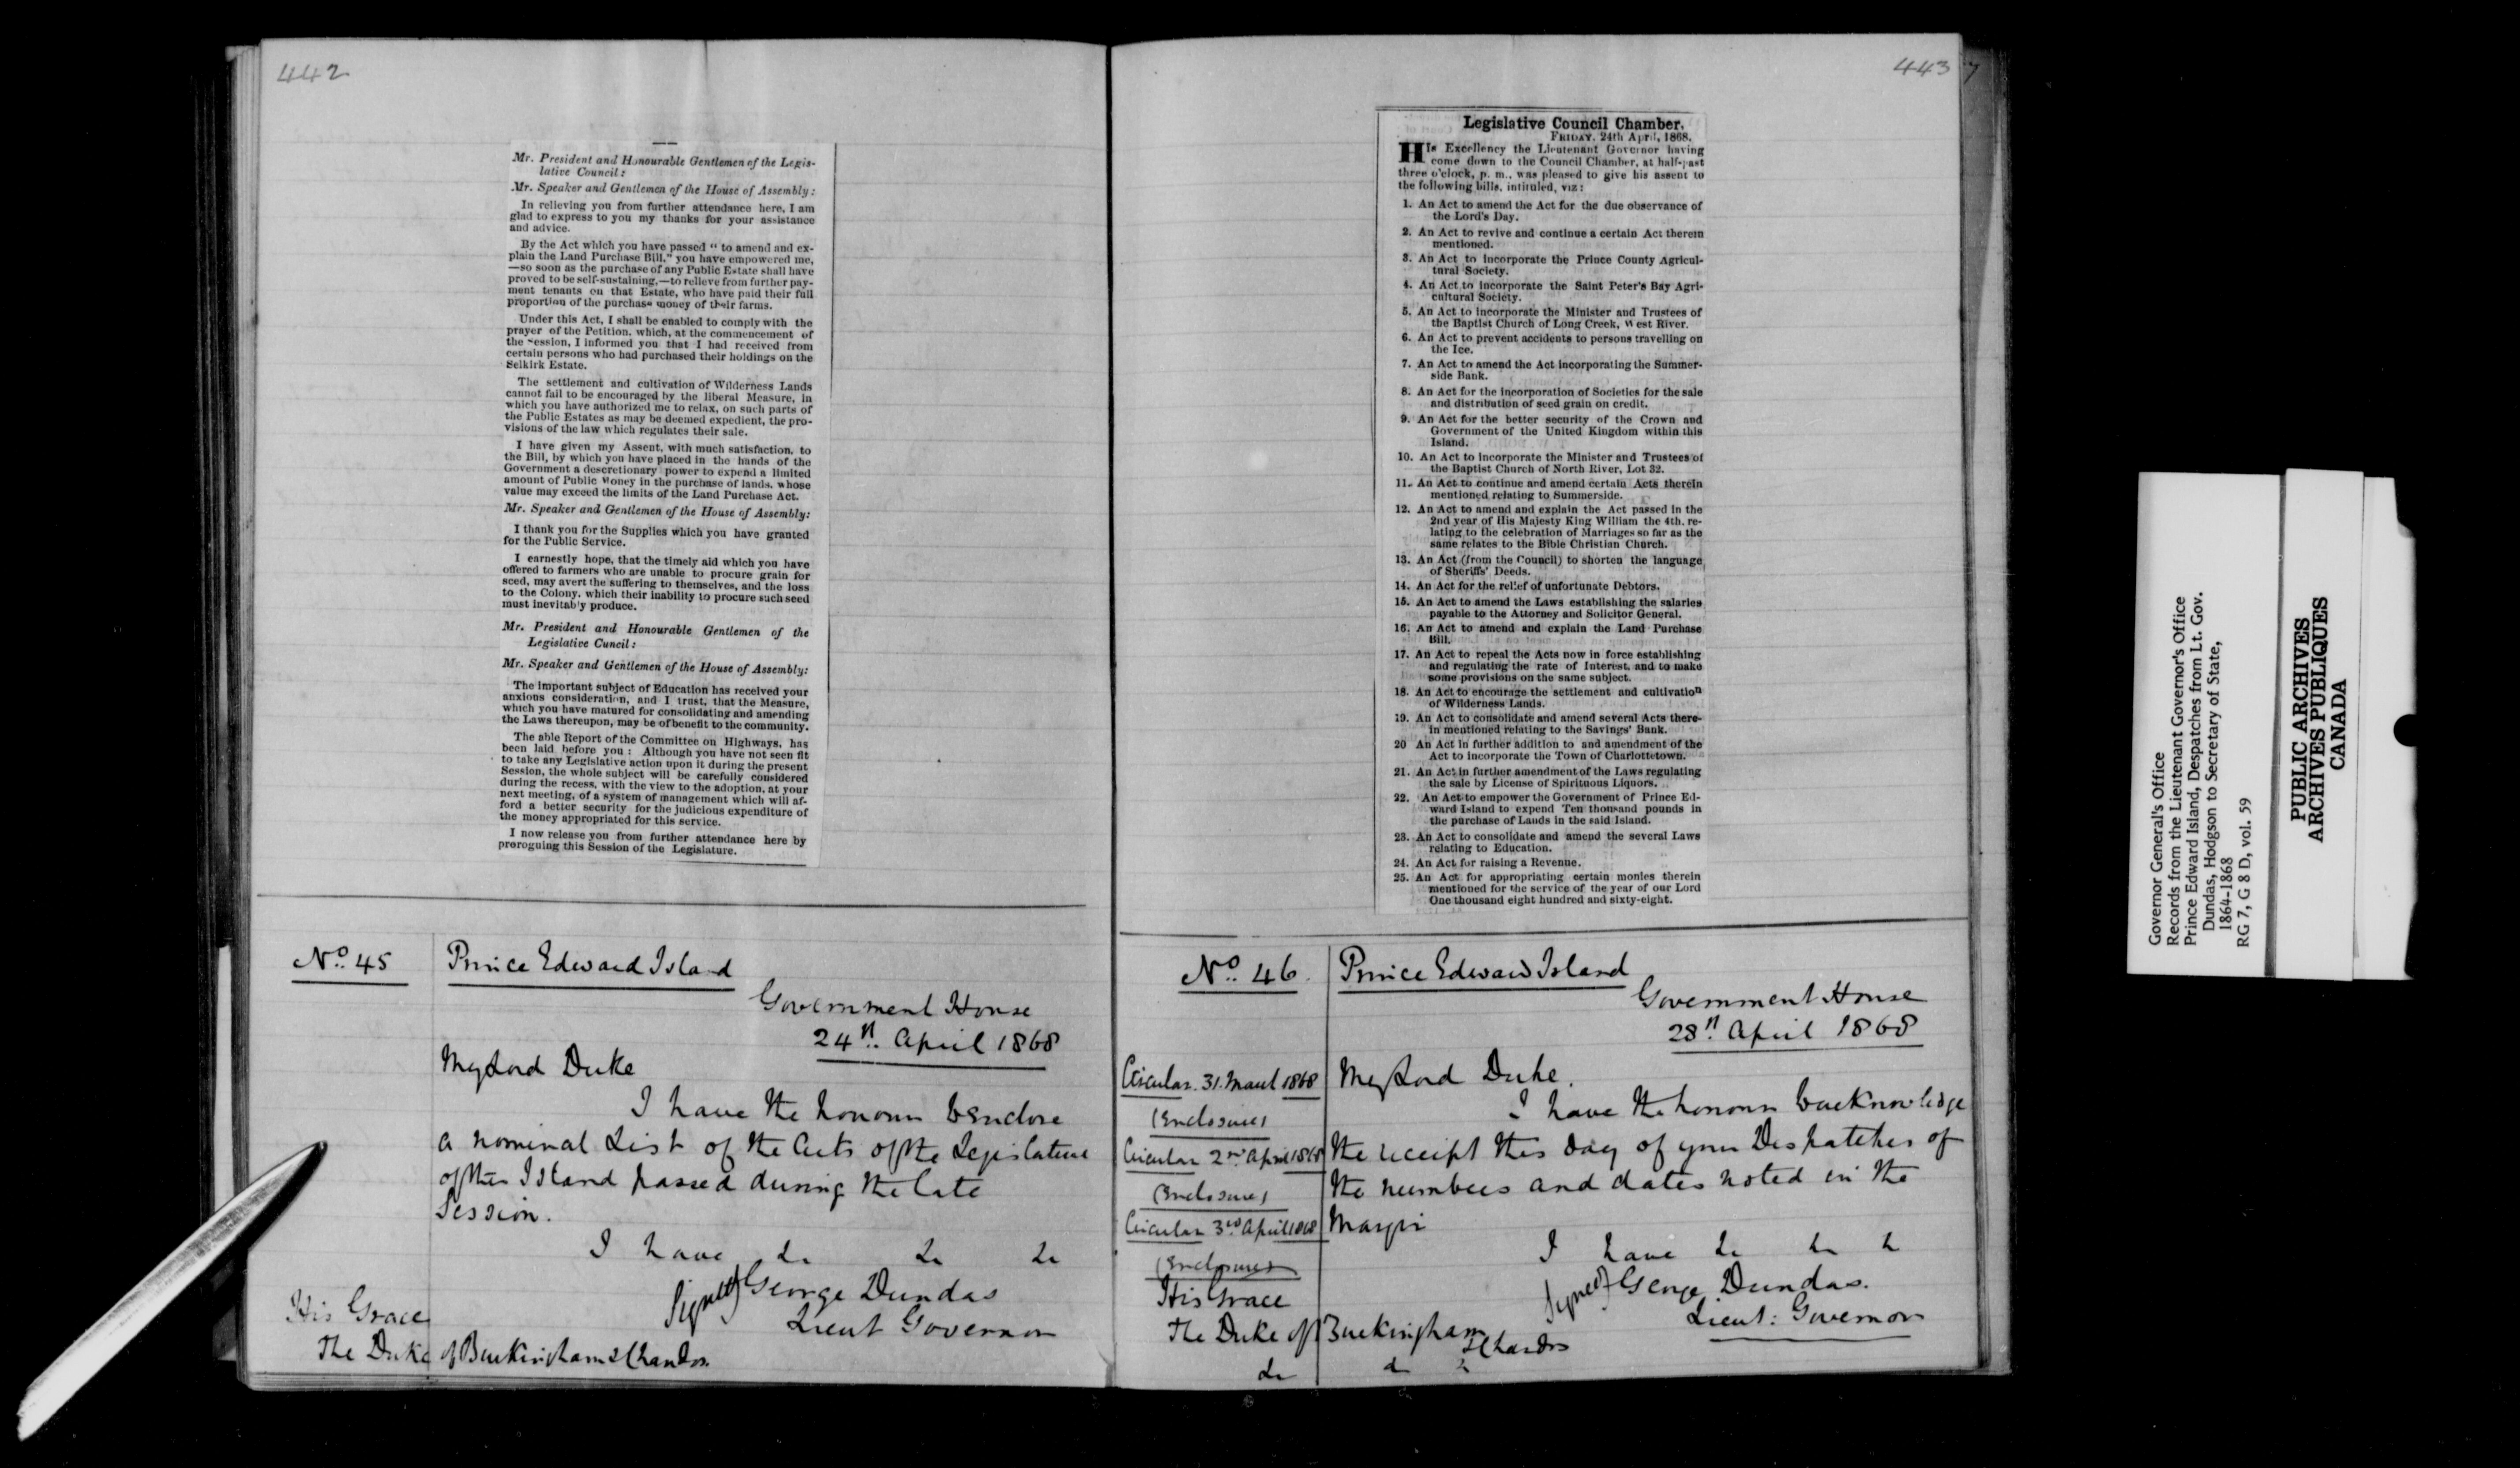 442
Mr. President and Honourable Gentlemen of the Legis-
lative Council:
Mr. Speaker and Gentlemen of the House of Assembly:
In relieving you from further attendance here, I am
glad to express to you my thanks for your assistance
and advice.
By the Act which you have passed "to amend and ex-
plain the Land Purchase Bill," you have empowered me,
—so soon as the purchase of any Public Estate shall have
proved to be self-sustaining,—to relieve from further pay-
ment tenants on that Estate, who have paid their full
proportion of the purchase money of their farms.
Under this Act, I shall be enabled to comply with the
prayer of the Petition, which, at the commencement of
the session, I informed you that I had received from
certain persons who had purchased their holdings on the
Selkirk Estate.
The settlement and cultivation of Wilderness Lands
cannot fail to be encouraged by the liberal Measure, in
which you have authorized me to relax, on such parts of
the Public Estates as may be deemed expedient, the pro-
visions of the law which regulates their sale.
I have given my Assent, with much satisfaction, to
the Bill, by which you have placed in the hands of the
Government a descretionary power to expend a limited
amount of Public Money in the purchase of lands, whose
value may exceed the limits of the Land Purchase Act.
Mr. Speaker and Gentlemen of the House of Assembly:
I thank you for the Supplies which you have granted
for the Public Service.
I earnestly hope, that the timely aid which you have
offered to farmers who are unable to procure grain for
seed, may avert the suffering to themselves, and the loss
to the Colony, which their inability to procure such seed
must inevitably produce.
Mr. President and Honourable Gentlemen of the
Legislative Cuncil:
Mr. Speaker and Gentlemen of the House of Assembly:
The important subject of Education has received your
anxious consideration, and I trust, that the Measure,
which you have matured for consolidating and amending
the Laws thereupon, may be of benefit to the community.
The able Report of the Committee on Highways, has
been laid before you: Although you have not seen fit
to take any Legislative action upon it during the present
Session, the whole subject will be carefully considered
during the recess, with the view to the adoption, at your
next meeting, of a system of management which will af-
ford a better security for the judicious expenditure of
the money appropriated for this service.
I now release you from further attendance here by
proroguing this Session of the Legislature.
No. 45
Prince Edward Island
Government House
24th April 1868
My Lord Duke
I have the honour to enclose
a nominal List of the Acts of the Legislature
of this Island passed during the late
Session.
I have &c &c &c
(Signed) George Dundas
Lieut Governor
His Grace
The Duke of Buckingham & Chandos
443
7
Legislative Council Chamber,
FRIDAY, 24th April, 1868.
HIs Excellency the Lieutenant Governor having
come down to the Council Chamber, at half-past
three o'clock, p. m., was pleased to give his assent to
the following bills, intituled, viz:
1. An Act to amend the Act for the due observance of
the Lord's Day.
2. An Act to revive and continue a certain Act therein
mentioned.
3. An Act to incorporate the Prince County Agricul-
tural Society.
4. An Act to incorporate the Saint Peter's Bay Agri-
cultural Society.
5. An Act to incorporate the Minister and Trustees of
the Baptist Church of Long Creek, West River.
6. An Act to prevent accidents to persons travelling on
the Ice.
7. An Act to amend the Act incorporating the Summer-
side Bank.
8. An Act for the incorporation of Societies for the sale
and distribution of seed grain on credit.
9. An Act for the better security of the Crown and
Government of the United Kingdom within this
Island.
10. An Act to incorporate the Minister and Trustees of
the Baptist Church of North River, Lot 32.
11. An Act to continue and amend certain Acts therein
mentioned relating to Summerside.
12. An Act to amend and explain the Act passed in the
2nd year of His Majesty King William the 4th, re-
lating to the celebration of Marriages so far as the
same relates to the Bible Christian Church.
13. An Act (from the Council) to shorten the language
of Sheriffs' Deeds.
14. An Act for the relief of unfortunate Debtors.
15. An Act to amend the Laws establishing the salaries
payable to the Attorney and Solicitor General.
16. An Act to amend and explain the Land Purchase
Bill.
17. An Act to repeal the Acts now in force establishing
and regulating the rate of Interest, and to make
some provisions on the same subject.
18. An Act to encourage the settlement and cultivation
of Wilderness Lands.
19. An Act to consolidate and amend several Acts there-
in mentioned relating to the Savings' Bank.
20 An Act in further addition to and amendment of the
Act to incorporate the Town of Charlottetown.
21. An Act in further amendment of the Laws regulating
the sale by License of Spirituous Liquors.
22. An Act to empower the Government of Prince Ed-
ward Island to expend Ten thousand pounds in
the purchase of Lands in the said Island.
23. An Act to consolidate and amend the several Laws
relating to Education.
24. An Act for raising a Revenue.
25. An Act for appropriating certain monies therein
mentioned for the service of the year of our Lord
One thousand eight hundred and sixty-eight.
No. 46.
Prince Edward Island
Government House
28th April 1868
Circular 31. March 1868
(Enclosure)
Circular 2nd April 1868
(Enclosure)
Circular 3rd April 1868
(Enclosure)
My Lord Duke.
I have the honour to acknowledge
the receipt this day of your Despatches of
the numbers and dates noted in the
Margin
I have &c &c &c
(Signed) George Dundas.
Lieut: Governor
His Grace
The Duke of Buckingham
& Chandos
&c &c &c
Governor General's Office
Records from the Lieutenant Governor's Office
Prince Edward Island, Despatches from Lt. Gov.
Dundas, Hodgson to Secretary of State,
1864-1868
RG 7, G 8 D, vol. 59
PUBLIC ARCHIVES
ARCHIVES PUBLIQUES
CANADA